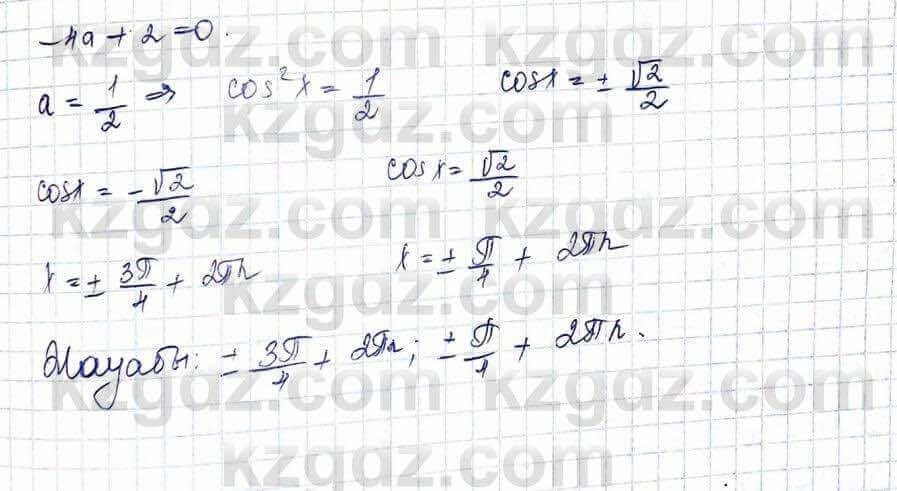 -4a + 2 = 0.
a = 1/2 ⇒ cos²x = 1/2 cosx = ± √2/2
cosx = - √2/2 cosx = √2/2
x = ± 3π/4 + 2πn x = ± π/4 + 2πn
Жауабы: ± 3π/4 + 2πn; ± π/4 + 2πn.
kzgdz.com kzgdz.com
kzgdz.com
kzgdz.com kzgdz.com
kzgdz.com
kzgdz.com kzgdz.com
kzgdz.com